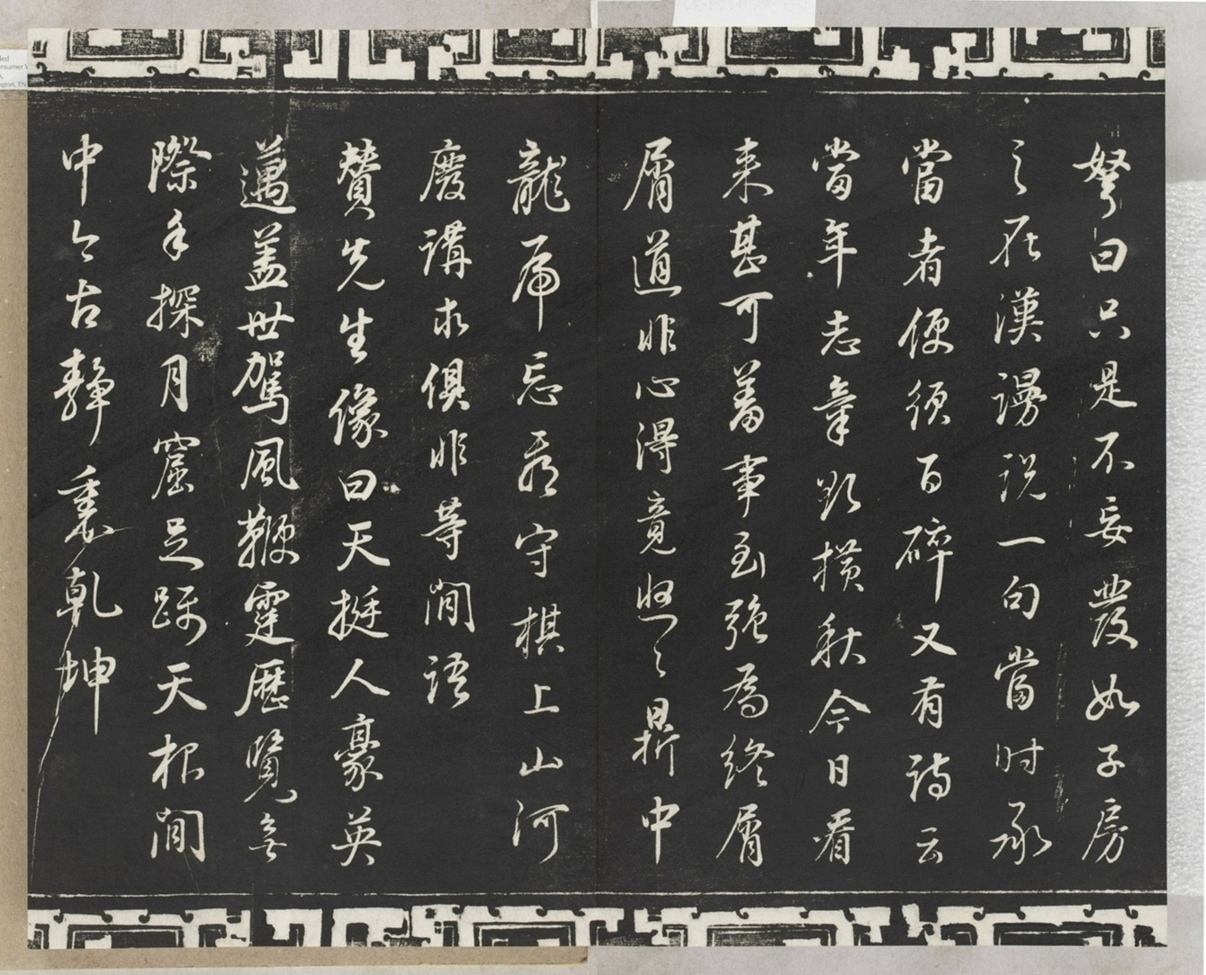 弩曰只是不妄發如子房
之在漢謾説一句當时承
當者便須百碎又有詩云
當年志氣欲橫秋今日看
来甚可羞事到强為終屑
屑道非心得竟悠〻鼎中
龍虎忘看守棋上山河
廢講求俱非等閒語
賛先生像曰天挺人豪英
邁盖世駕風鞭霆歷覽無
際手探月窟足躡天根閒
中今古靜裏乾坤